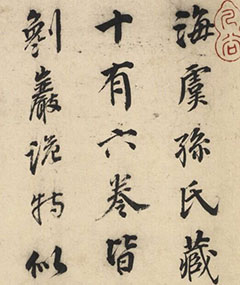 海虞孫氏藏
十有六卷皆
巖詭特似